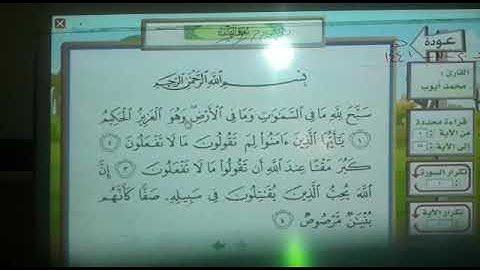 بِسْمِ اللَّهِ الرَّحْمَٰنِ الرَّحِيمِ
سَبَّحَ لِلَّهِ مَا فِي السَّمَٰوَٰتِ وَمَا فِي الْأَرْضِ وَهُوَ الْعَزِيزُ الْحَكِيمُ
١ يَٰٓأَيُّهَا الَّذِينَ ءَامَنُوا لِمَ تَقُولُونَ مَا لَا تَفْعَلُونَ ٢
كَبُرَ مَقْتًا عِندَ اللَّهِ أَن تَقُولُوا مَا لَا تَفْعَلُونَ ٣ إِنَّ
اللَّهَ يُحِبُّ الَّذِينَ يُقَٰتِلُونَ فِي سَبِيلِهِ صَفًّا كَأَنَّهُم
بُنْيَٰنٌ مَّرْصُوصٌ ٤
عودة
القارئ :
محمد أيوب
قراءة محددة
من الآية
إلى الآية
تكرار السورة
تكرار الآية